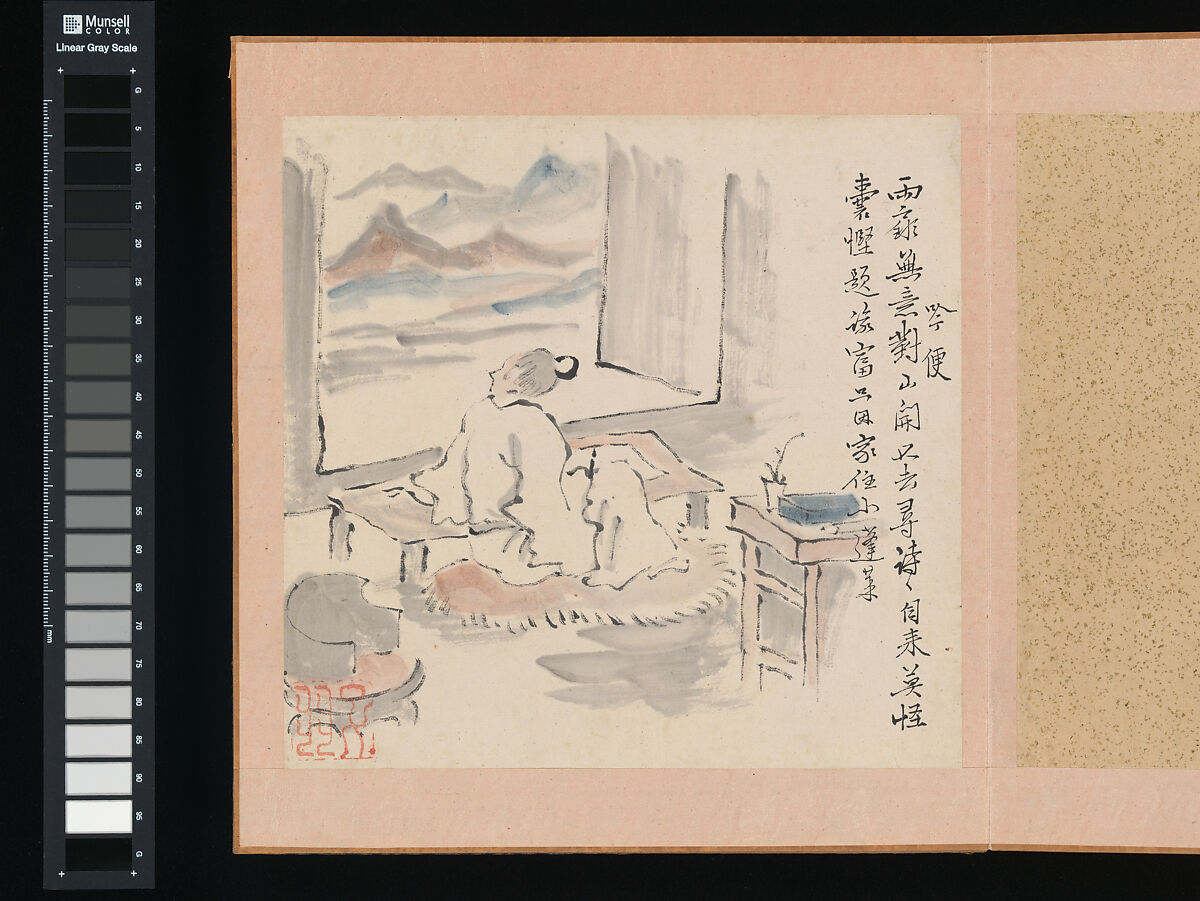 Munsell
COLOR
Linear Gray Scale
G
5
10
15
20
25
30
35
40
45
50
55
60
65
70
75
80
85
90
95
G
mm
吟便
兩扉無意對山開不去尋詩〻自来莫怪
囊慳題詠富只因家住小蓬莱